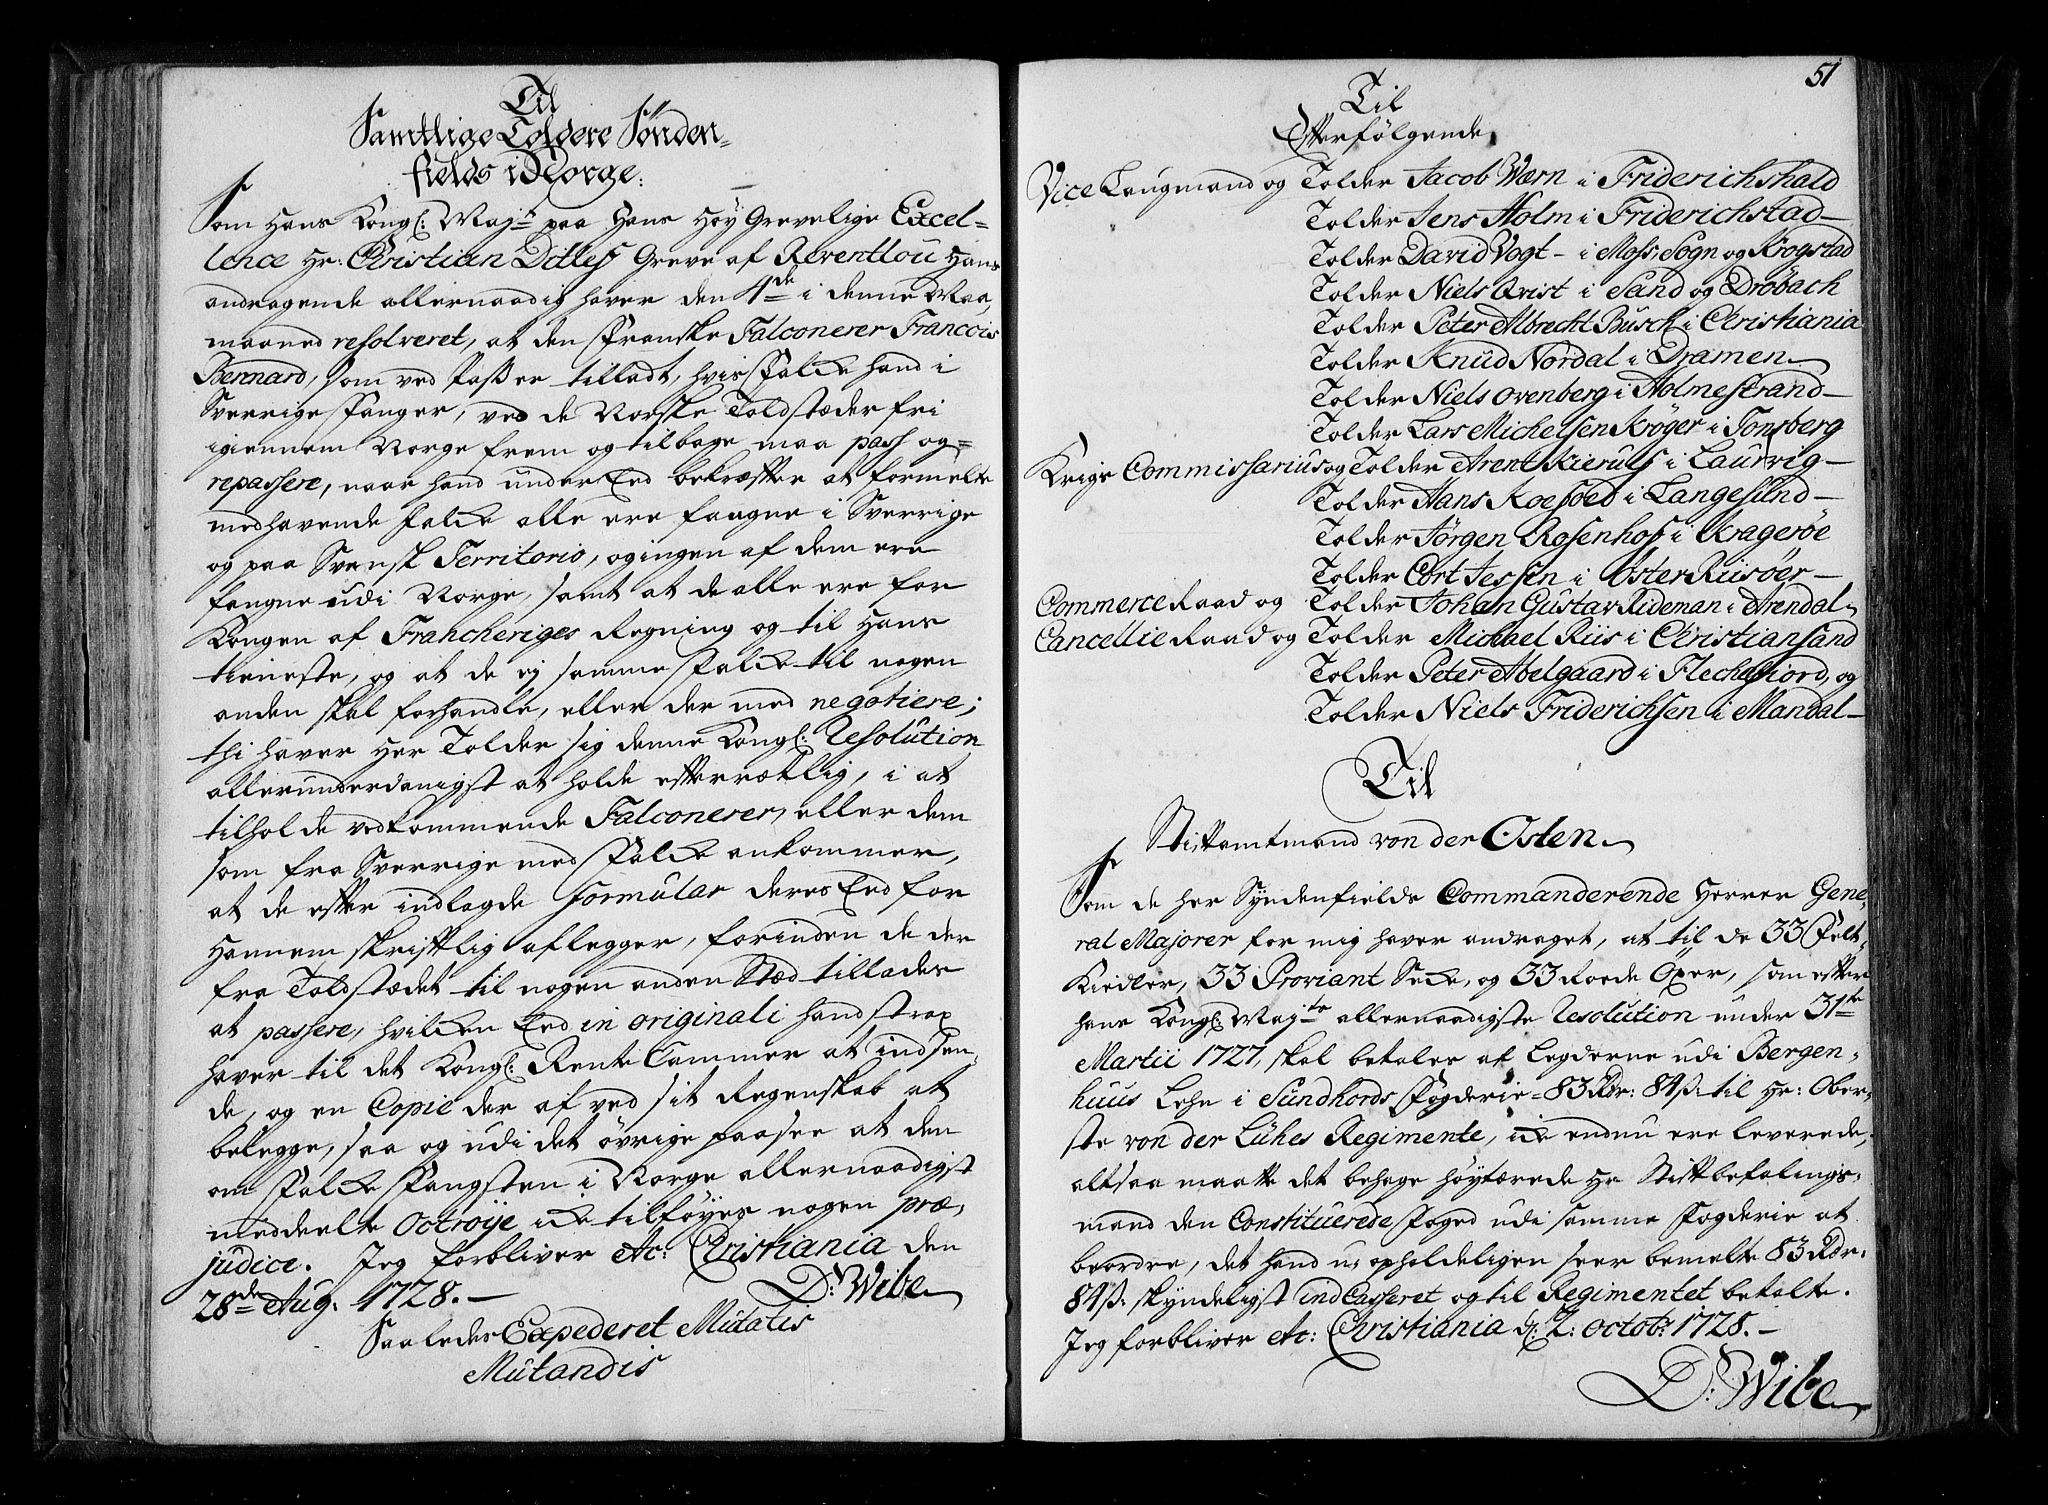 Til
Samtlige Toldere Sønden-
fields i Norge:
Som Hans Kongl: Mayt paa Hans Høy Grevelige Excel-
lence Hr: Christian Ditlef Greve af Reventlou Hans
andragende allernaadig haver den 4de i denne Maa,
maaned resolveret, at den Franske Falconerer Francois
Bernard, som ved Pass er tilladt, hvis Falke hand i
Sverrige Fanger, ved de Norske Toldstæder fri
igiennem Norge frem og tilbage maa pass og=
repassere, naar hand under Eed bekræfter at formelte
medhavende Falke alle ere fangne i Sverrige
og paa Svensk Territorio, og ingen af dem ere
fangne udi Norge, samt at de alle ere for
Kongen af Francheriges Regning og til Hans
tieneste, og at de ej samme Falke til nogen
anden skal forhandle, eller der med negotiere;
thi haver Her Tolder sig denne Kongl: Resolution
allerunderdanigst at holde efterrættlig, i at
tilholde vedkommende Falconerer, eller dem
som fra Sverrige med Falke ankommer,
at de efter indlagde Formular deres Eed for
Hannem skriftlig aflegger, forinden de der
fra Toldstædet til nogen anden Stæd tillades
at passere, hvilken Eed in originali hand strax
haver til det Kongl: Rente Cammer at indsen,
de, og en Copie der af ved sit Regenskab at
belegge, saa og udi det øvrige paasee at den
om Falke Fangsten i Norge allernaadigst
meddeelte Octroije icke tilføyes nogen præ,
judice. Jeg forbliver etc: Christiania den
28de Aug: 1728.— D: Wibe
Saaledes Expederet Mutatis
Mutandis
51
Til
Efterfølgende,
Vice Laugmand og Tolder Jacob Wærn i Friderichshald
Tolder Jens Holm i Friderichstad—
Tolder David Vogt - i Moss, Sogn og Krogstad
Tolder Niels Qvist i Sand og Drøbach
Tolder Peter Albrecht Busch i Christiania
Tolder Knud Nordal i Dramen
Tolder Niels Ovenberg i Holmestrand—
Tolder Lars Michelsen Krøger i Tønsberg
Krigs Commissarius og Tolder Arent Kierulf i Laurvig—
Tolder Hans Koefoed i Langesund—
Tolder Jørgen Rosenhof i Kragerøe
Tolder Cort Jessen i Øster Riisøer—
Commerce Raad og Tolder Johan Gustav Rideman i Arendal
Cancellie Raad og Tolder Michael Riis i Christiansand
Tolder Peter Abelgaard i Flechefiord, og
Tolder Niels Friderichsen i Mandal—
Til
Stiftamtmand von der Osten.
Som de her Syndenfields Commanderende Herrer Gene,
ral Majorer for mig haver andraget, at til de 33 Felt-
Kiedler, 33 Proviant Seke, og 33 Roede Øxer, som efter
hans Kongl: Mayts allernaadigste Resolution under 31te
Martii 1727, skal betales af Legderne udi Bergen-
huus Lehn i Sundhords Fogderie = 83 Rdr: 84 ß: til Hr: Ober-
ste von der Lühes Regimente, icke endnu ere leverede,
altsaa maatte det behage høytærede Hr Stiftbefalings-
mand den Constituerede Foged udi samme Fogderie at
beordre, det hand u-opholdeligen seer bemelte 83 Rdr:
84 ß: skyndeligst ind Casseret og til Regimentet betalte.
Jeg forbliver etc: Christiania d: 2: Octob: 1728.—
D: Wibe